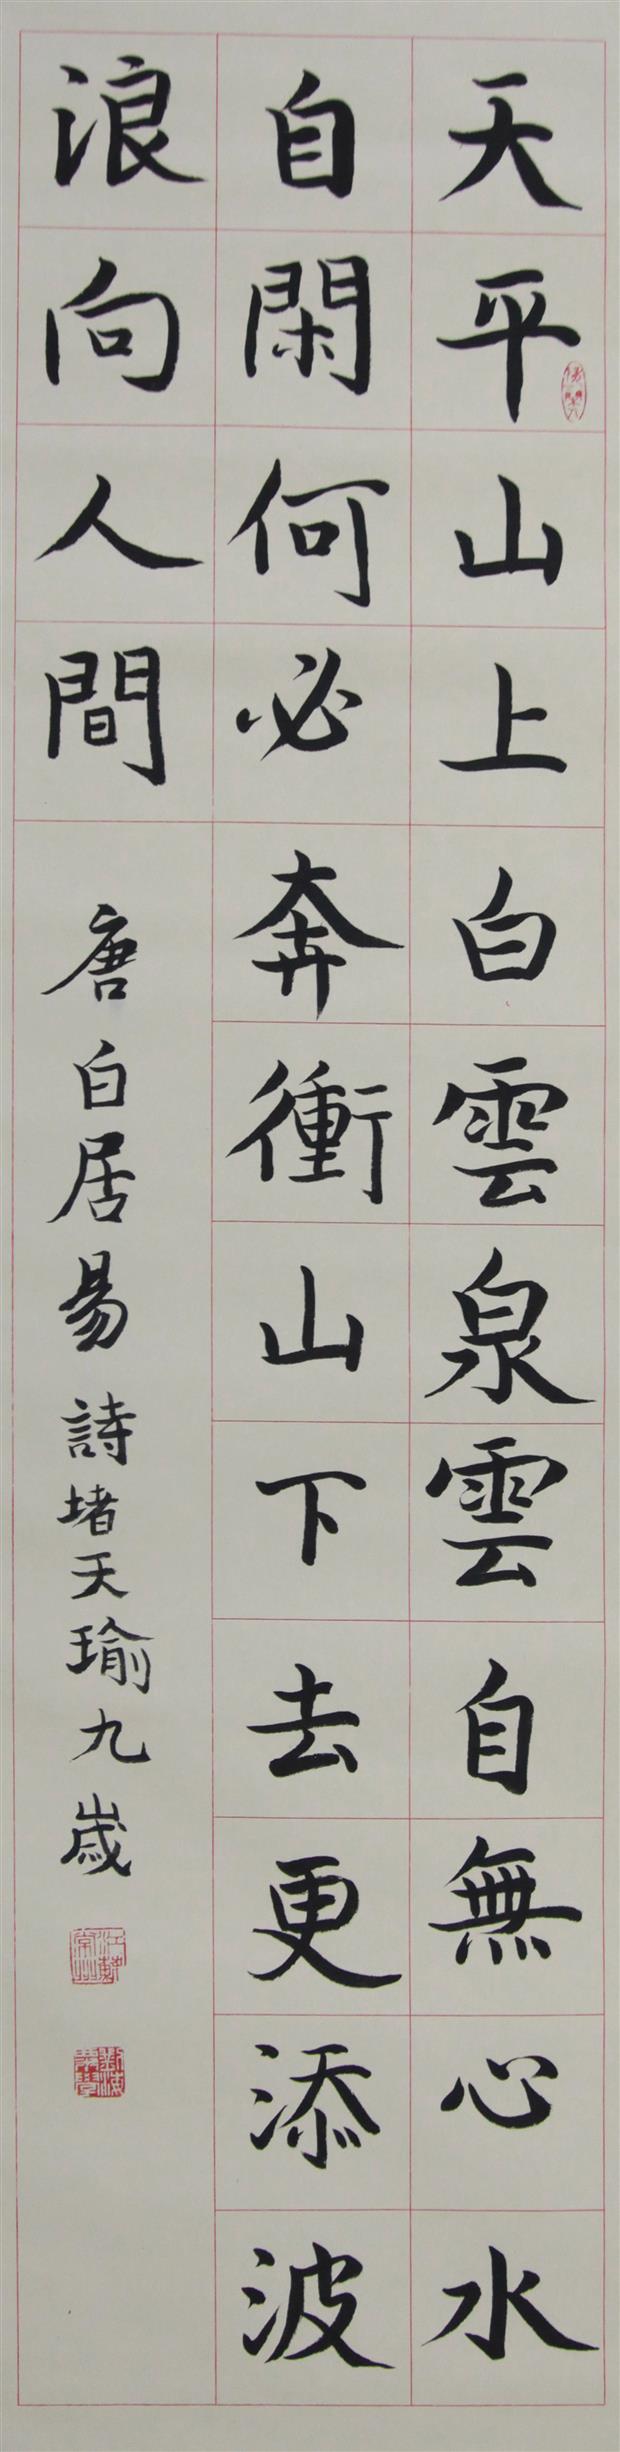 天平山上白雲泉雲自無心水
自閑何必奔衝山下去更添波
浪向人間
唐白居易詩堵天瑜九歲